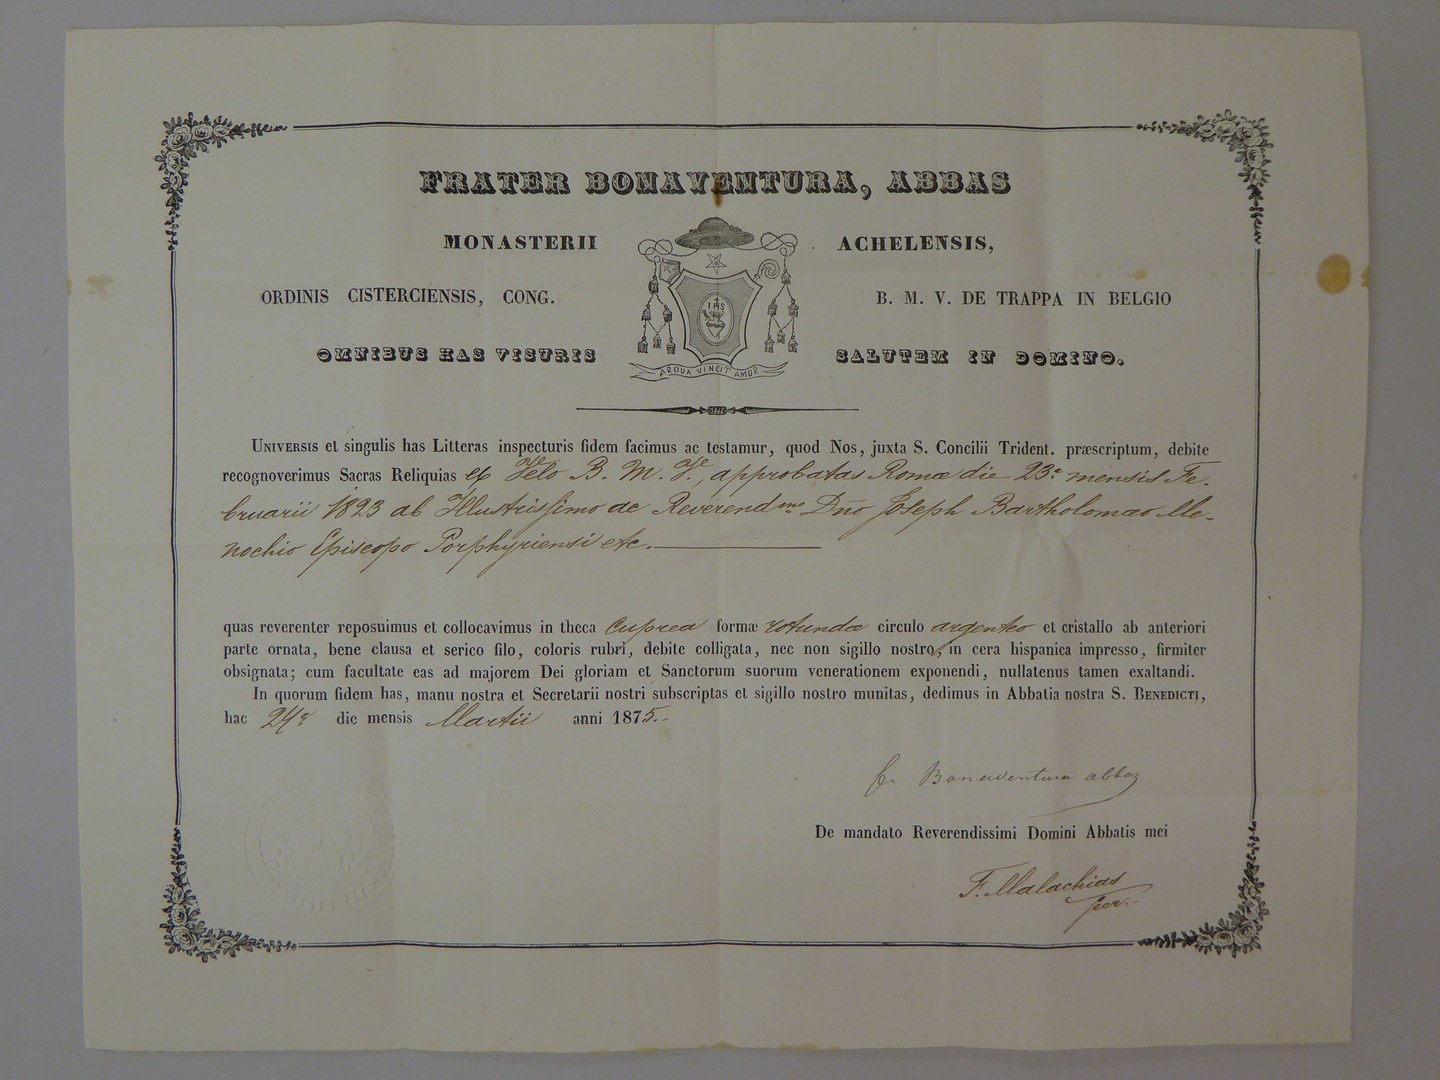 FRATER BONAVENTURA, ABBAS
MONASTERII ACHELENSIS,
ORDINIS CISTERCIENSIS, CONG. B. M. V. DE TRAPPA IN BELGIO
IHS
OMNIBUS HAS VISURIS SALUTEM IN DOMINO.
ARDUA VINCIT AMOR
UNIVERSIS et singulis has Litteras inspecturis fidem facimus ac testamur, quod Nos, juxta S. Concilii Trident. præscriptum, debite
recognoverimus Sacras Reliquias ex Velo B. M. V., approbatas Romæ die 23ª mensis Fe-
bruarii 1823 ab Illustrissimo ac Reverendmo Dño Joseph Bartholomæo Me-
nochio Episcopo Porphyriensi etc.
quas reverenter reposuimus et collocavimus in theca cuprea formæ rotundæ circulo argenteo et cristallo ab anteriori
parte ornata, bene clausa et serico filo, coloris rubri, debite colligata, nec non sigillo nostro, in cera hispanica impresso, firmiter
obsignata; cum facultate eas ad majorem Dei gloriam et Sanctorum suorum venerationem exponendi, nullatenus tamen exaltandi.
In quorum fidem has, manu nostra et Secretarii nostri subscriptas et sigillo nostro munitas, dedimus in Abbatia nostra S. BENEDICTI,
hac 24ª die mensis Martii anni 1875.-
fr Bonaventura abbas
De mandato Reverendissimi Domini Abbatis mei
F. Malachias
secr.